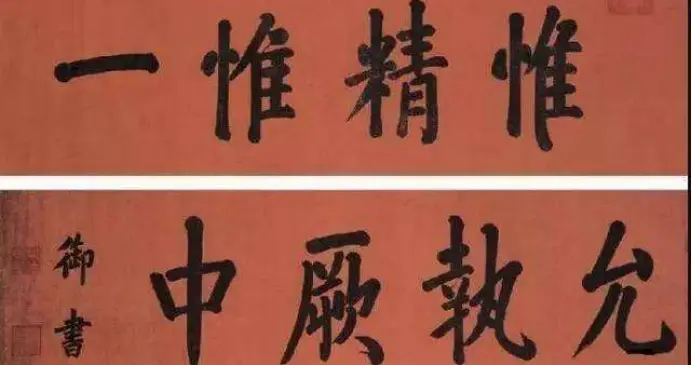 惟精惟一
允執厥中
御書